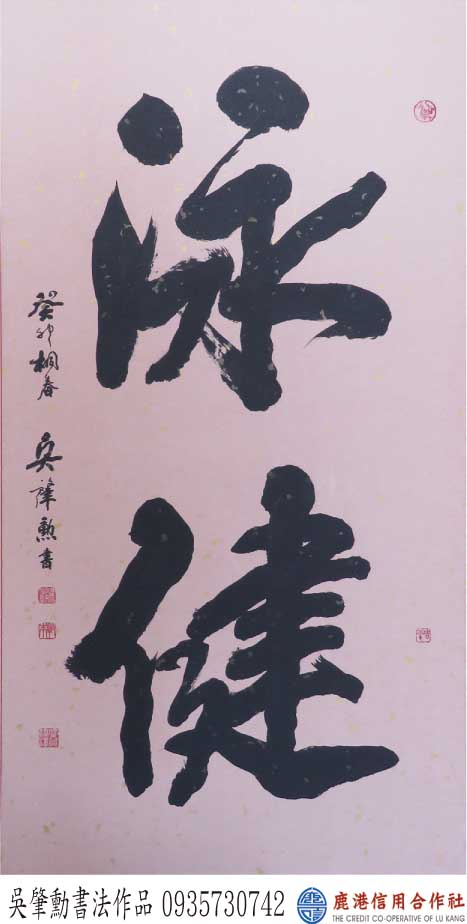 泳健
癸卯桐春 吳肇勳書
吳肇勳書法作品 0935730742
鹿港信用合作社
THE CREDIT CO-OPERATIVE OF LU KANG